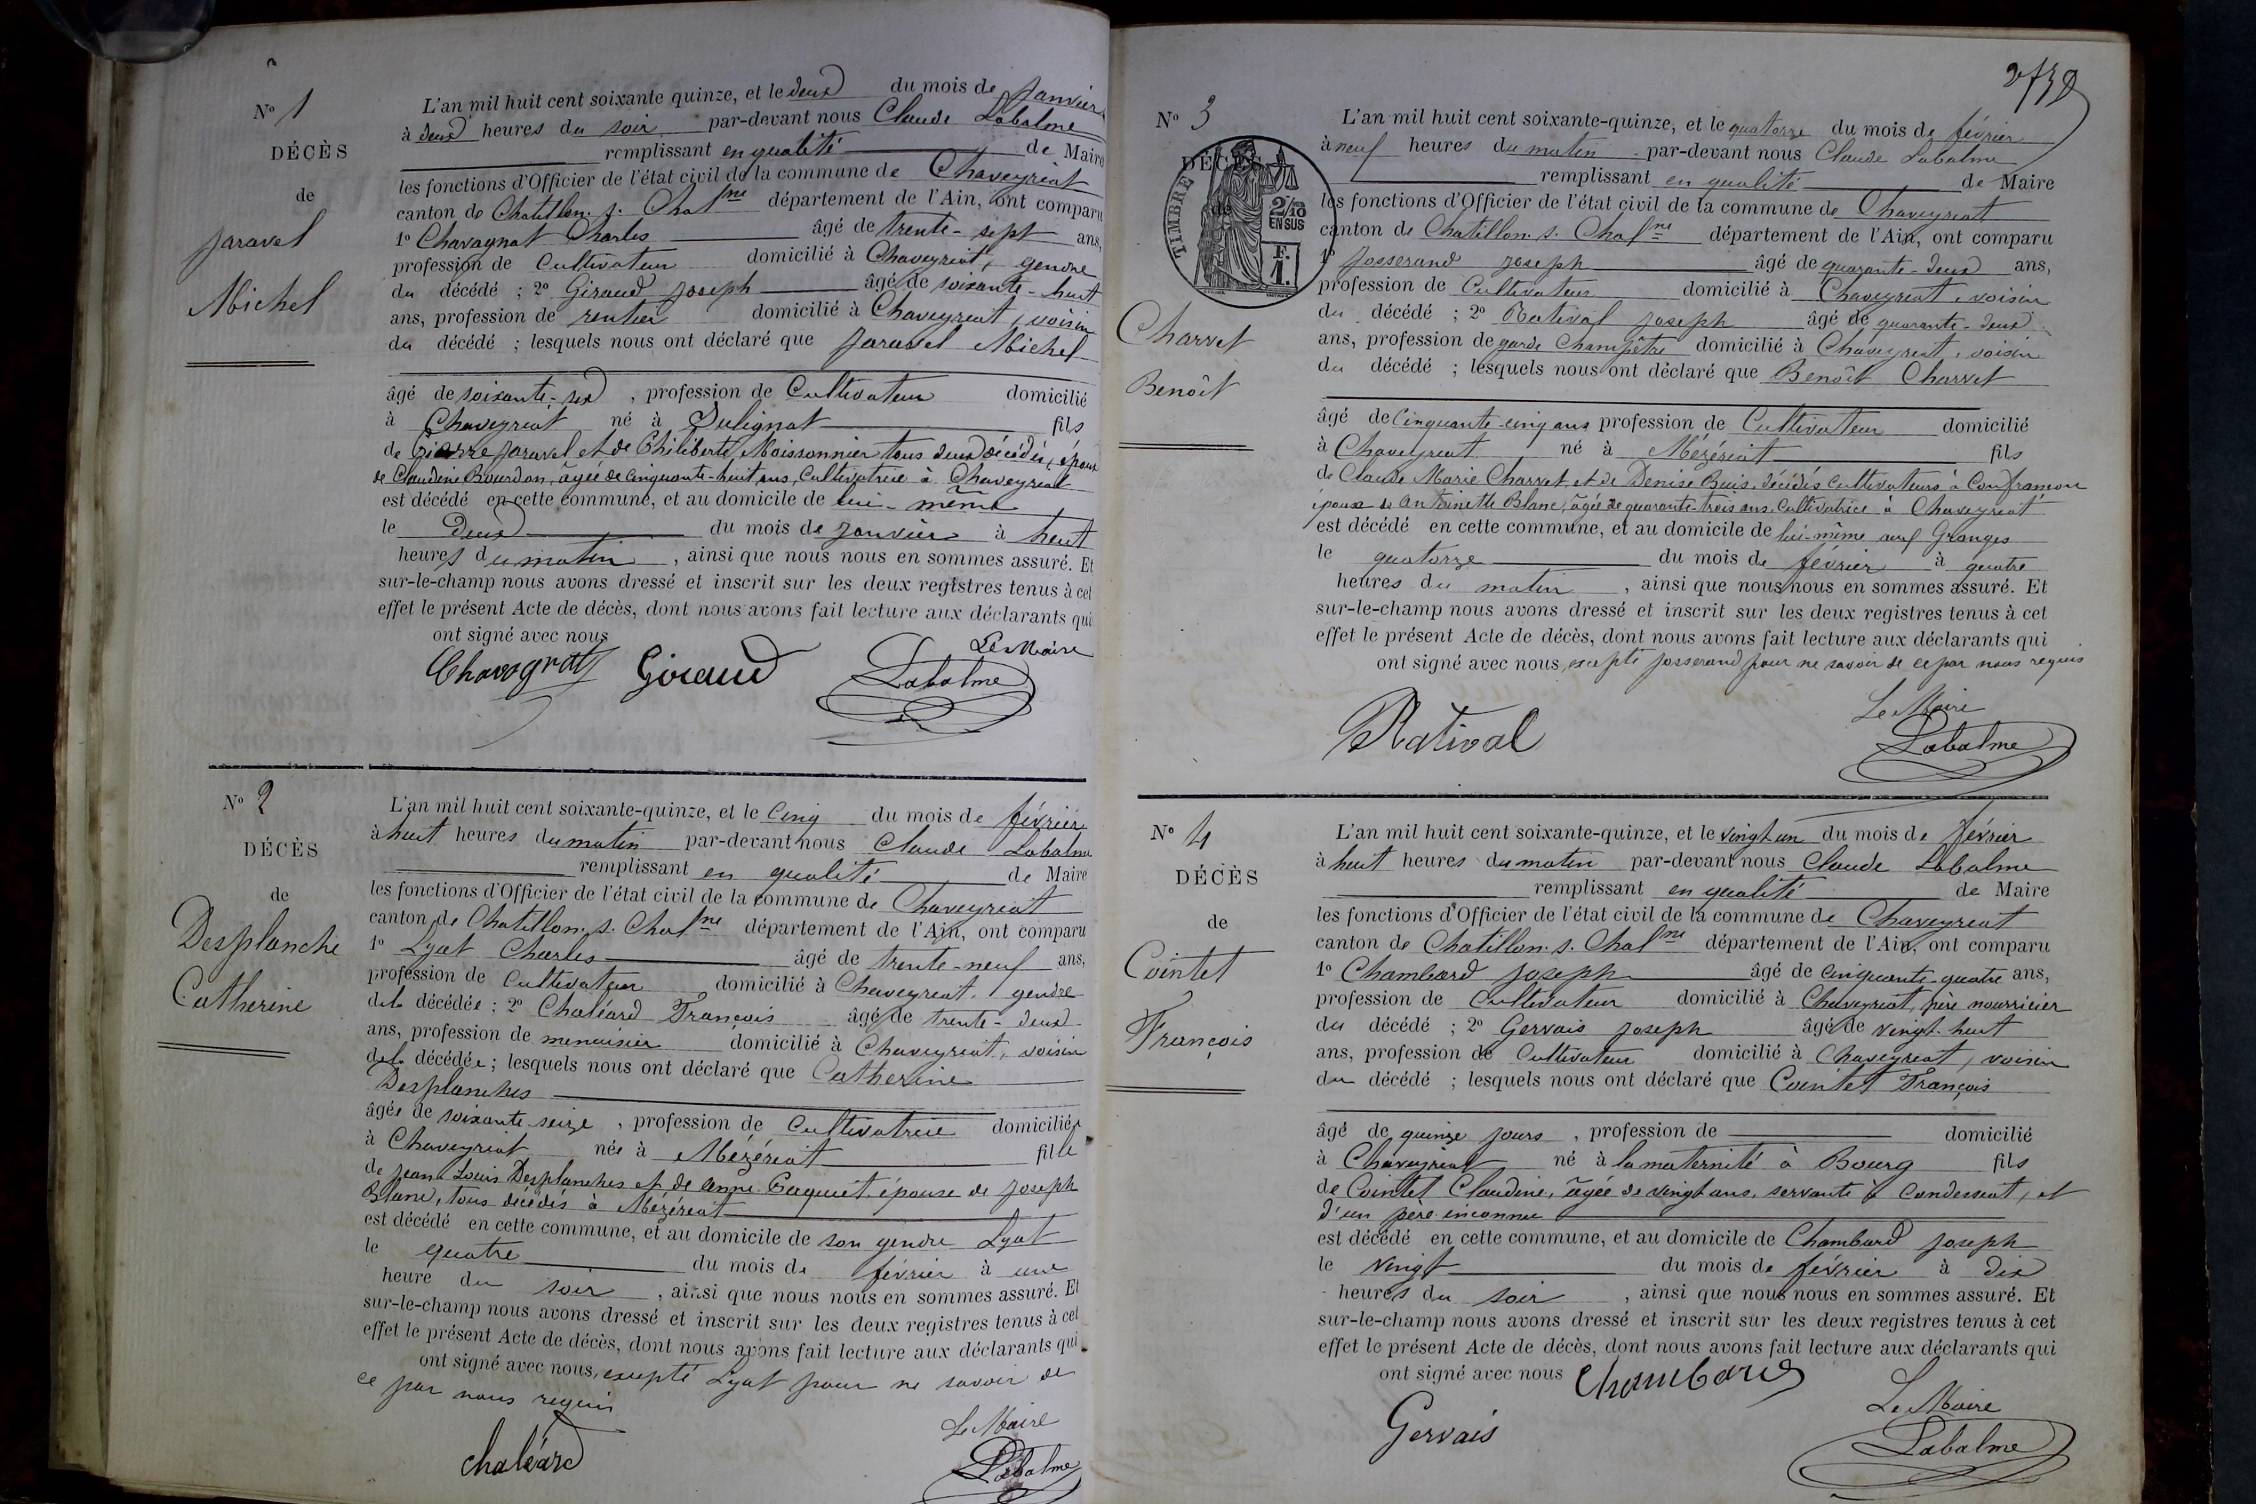 N° 1
DÉCÈS
de
Jaravel
Michel
L'an mil huit cent soixante quinze, et le deux du mois de janvier
à deux heures du soir par-devant nous Claude Labalme
remplissant en qualité de Maire
les fonctions d'Officier de l'état civil de la commune de Chaveyriat
canton de Chatillon s. Chalne département de l'Ain, ont comparu
1° Chavagnat Charles âgé de trente-sept ans,
profession de Cultivateur domicilié à Chaveyriat, gendre
du décédé ; 2° Giraud Joseph âgé de soixante-huit
ans, profession de rentier domicilié à Chaveyriat, voisin
du décédé ; lesquels nous ont déclaré que Jaravel Michel
âgé de soixante-six, profession de Cultivateur domicilié
à Chaveyriat né à Sulignat fils
de Pierre Jaravel et de Philiberte Moissonnier tous deux décédés, époux
de Claudine Bourdon, âgée de cinquante-huit ans, Cultivatrice à Chaveyriat
est décédé en cette commune, et au domicile de lui-même
le deux du mois de janvier à huit
heures du matin, ainsi que nous nous en sommes assuré. Et
sur-le-champ nous avons dressé et inscrit sur les deux registres tenus à cet
effet le présent Acte de décès, dont nous avons fait lecture aux déclarants qui
ont signé avec nous
Le Maire
Chavagnat Giraud Labalme
N° 2
DÉCÈS
de
Desplanche
Catherine
L'an mil huit cent soixante-quinze, et le Cinq du mois de février
à huit heures du matin par-devant nous Claude Labalme
remplissant en qualité de Maire
les fonctions d'Officier de l'état civil de la commune de Chaveyriat
canton de Chatillon s. Chalne département de l'Ain, ont comparu
1° Lyat Charles âgé de trente-neuf ans,
profession de Cultivateur domicilié à Chaveyriat, gendre
de la décédée ; 2° Chaléard François âgé de trente-deux
ans, profession de menuisier domicilié à Chaveyriat, voisin
de la décédée ; lesquels nous ont déclaré que Catherine
Desplanches
âgée de soixante-seize, profession de Cultivatrice domiciliée
à Chaveyriat née à Mézériat fille
de Jean Louis Desplanches et de Anne Paquet, épouse de Joseph
Blanc, tous décédés à Mézériat
est décédé en cette commune, et au domicile de son gendre Lyat
le quatre du mois de février à une
heure du soir, ainsi que nous nous en sommes assuré. Et
sur-le-champ nous avons dressé et inscrit sur les deux registres tenus à cet
effet le présent Acte de décès, dont nous avons fait lecture aux déclarants qui
ont signé avec nous, excepté Lyat pour ne savoir de
ce par nous requis
Le Maire
Chaléard Labalme
N° 3
DÉCÈS
de
TIMBRE
2/10
EN SUS
F.
1.
Charvet
Benoît
L'an mil huit cent soixante-quinze, et le quatorze du mois de février
à neuf heures du matin par-devant nous Claude Labalme
remplissant en qualité de Maire
les fonctions d'Officier de l'état civil de la commune de Chaveyriat
canton de Chatillon s. Chalne département de l'Ain, ont comparu
1° Josserand Joseph âgé de quarante-deux ans,
profession de Cultivateur domicilié à Chaveyriat, voisin
du décédé ; 2° Ratival Joseph âgé de quarante-deux
ans, profession de garde Champêtre domicilié à Chaveyriat, voisin
du décédé ; lesquels nous ont déclaré que Benoît Charvet
âgé de Cinquante-cinq ans profession de Cultivateur domicilié
à Chaveyriat né à Mézériat fils
de Claude Marie Charvet et de Denise Buis, décédés cultivateurs à Confrançon
époux de Antoinette Blanc, âgée de quarante-trois ans, Cultivatrice à Chaveyriat
est décédé en cette commune, et au domicile de lui-même aux Granges
le quatorze du mois de février à quatre
heures du matin, ainsi que nous nous en sommes assuré. Et
sur-le-champ nous avons dressé et inscrit sur les deux registres tenus à cet
effet le présent Acte de décès, dont nous avons fait lecture aux déclarants qui
ont signé avec nous, excepté Josserand pour ne savoir de ce par nous requis
Le Maire
Ratival Labalme
N° 4
DÉCÈS
de
Cointet
François
L'an mil huit cent soixante-quinze, et le vingt un du mois de février
à huit heures du matin par-devant nous Claude Labalme
remplissant en qualité de Maire
les fonctions d'Officier de l'état civil de la commune de Chaveyriat
canton de Chatillon s. Chalne département de l'Ain, ont comparu
1° Chambard Joseph âgé de cinquante-quatre ans,
profession de Cultivateur domicilié à Chaveyriat, père nourricier
du décédé ; 2° Gervais Joseph âgé de vingt-huit
ans, profession de Cultivateur domicilié à Chaveyriat, voisin
du décédé ; lesquels nous ont déclaré que Cointet François
âgé de quinze jours, profession de domicilié
à Chaveyriat né à la maternité à Bourg fils
de Cointet Claudine, âgée de vingt ans, servante à Condeissiat, et
d'un père inconnu
est décédé en cette commune, et au domicile de Chambard Joseph
le vingt du mois de février à dix
heures du soir, ainsi que nous nous en sommes assuré. Et
sur-le-champ nous avons dressé et inscrit sur les deux registres tenus à cet
effet le présent Acte de décès, dont nous avons fait lecture aux déclarants qui
ont signé avec nous Chambard
Le Maire
Gervais Labalme